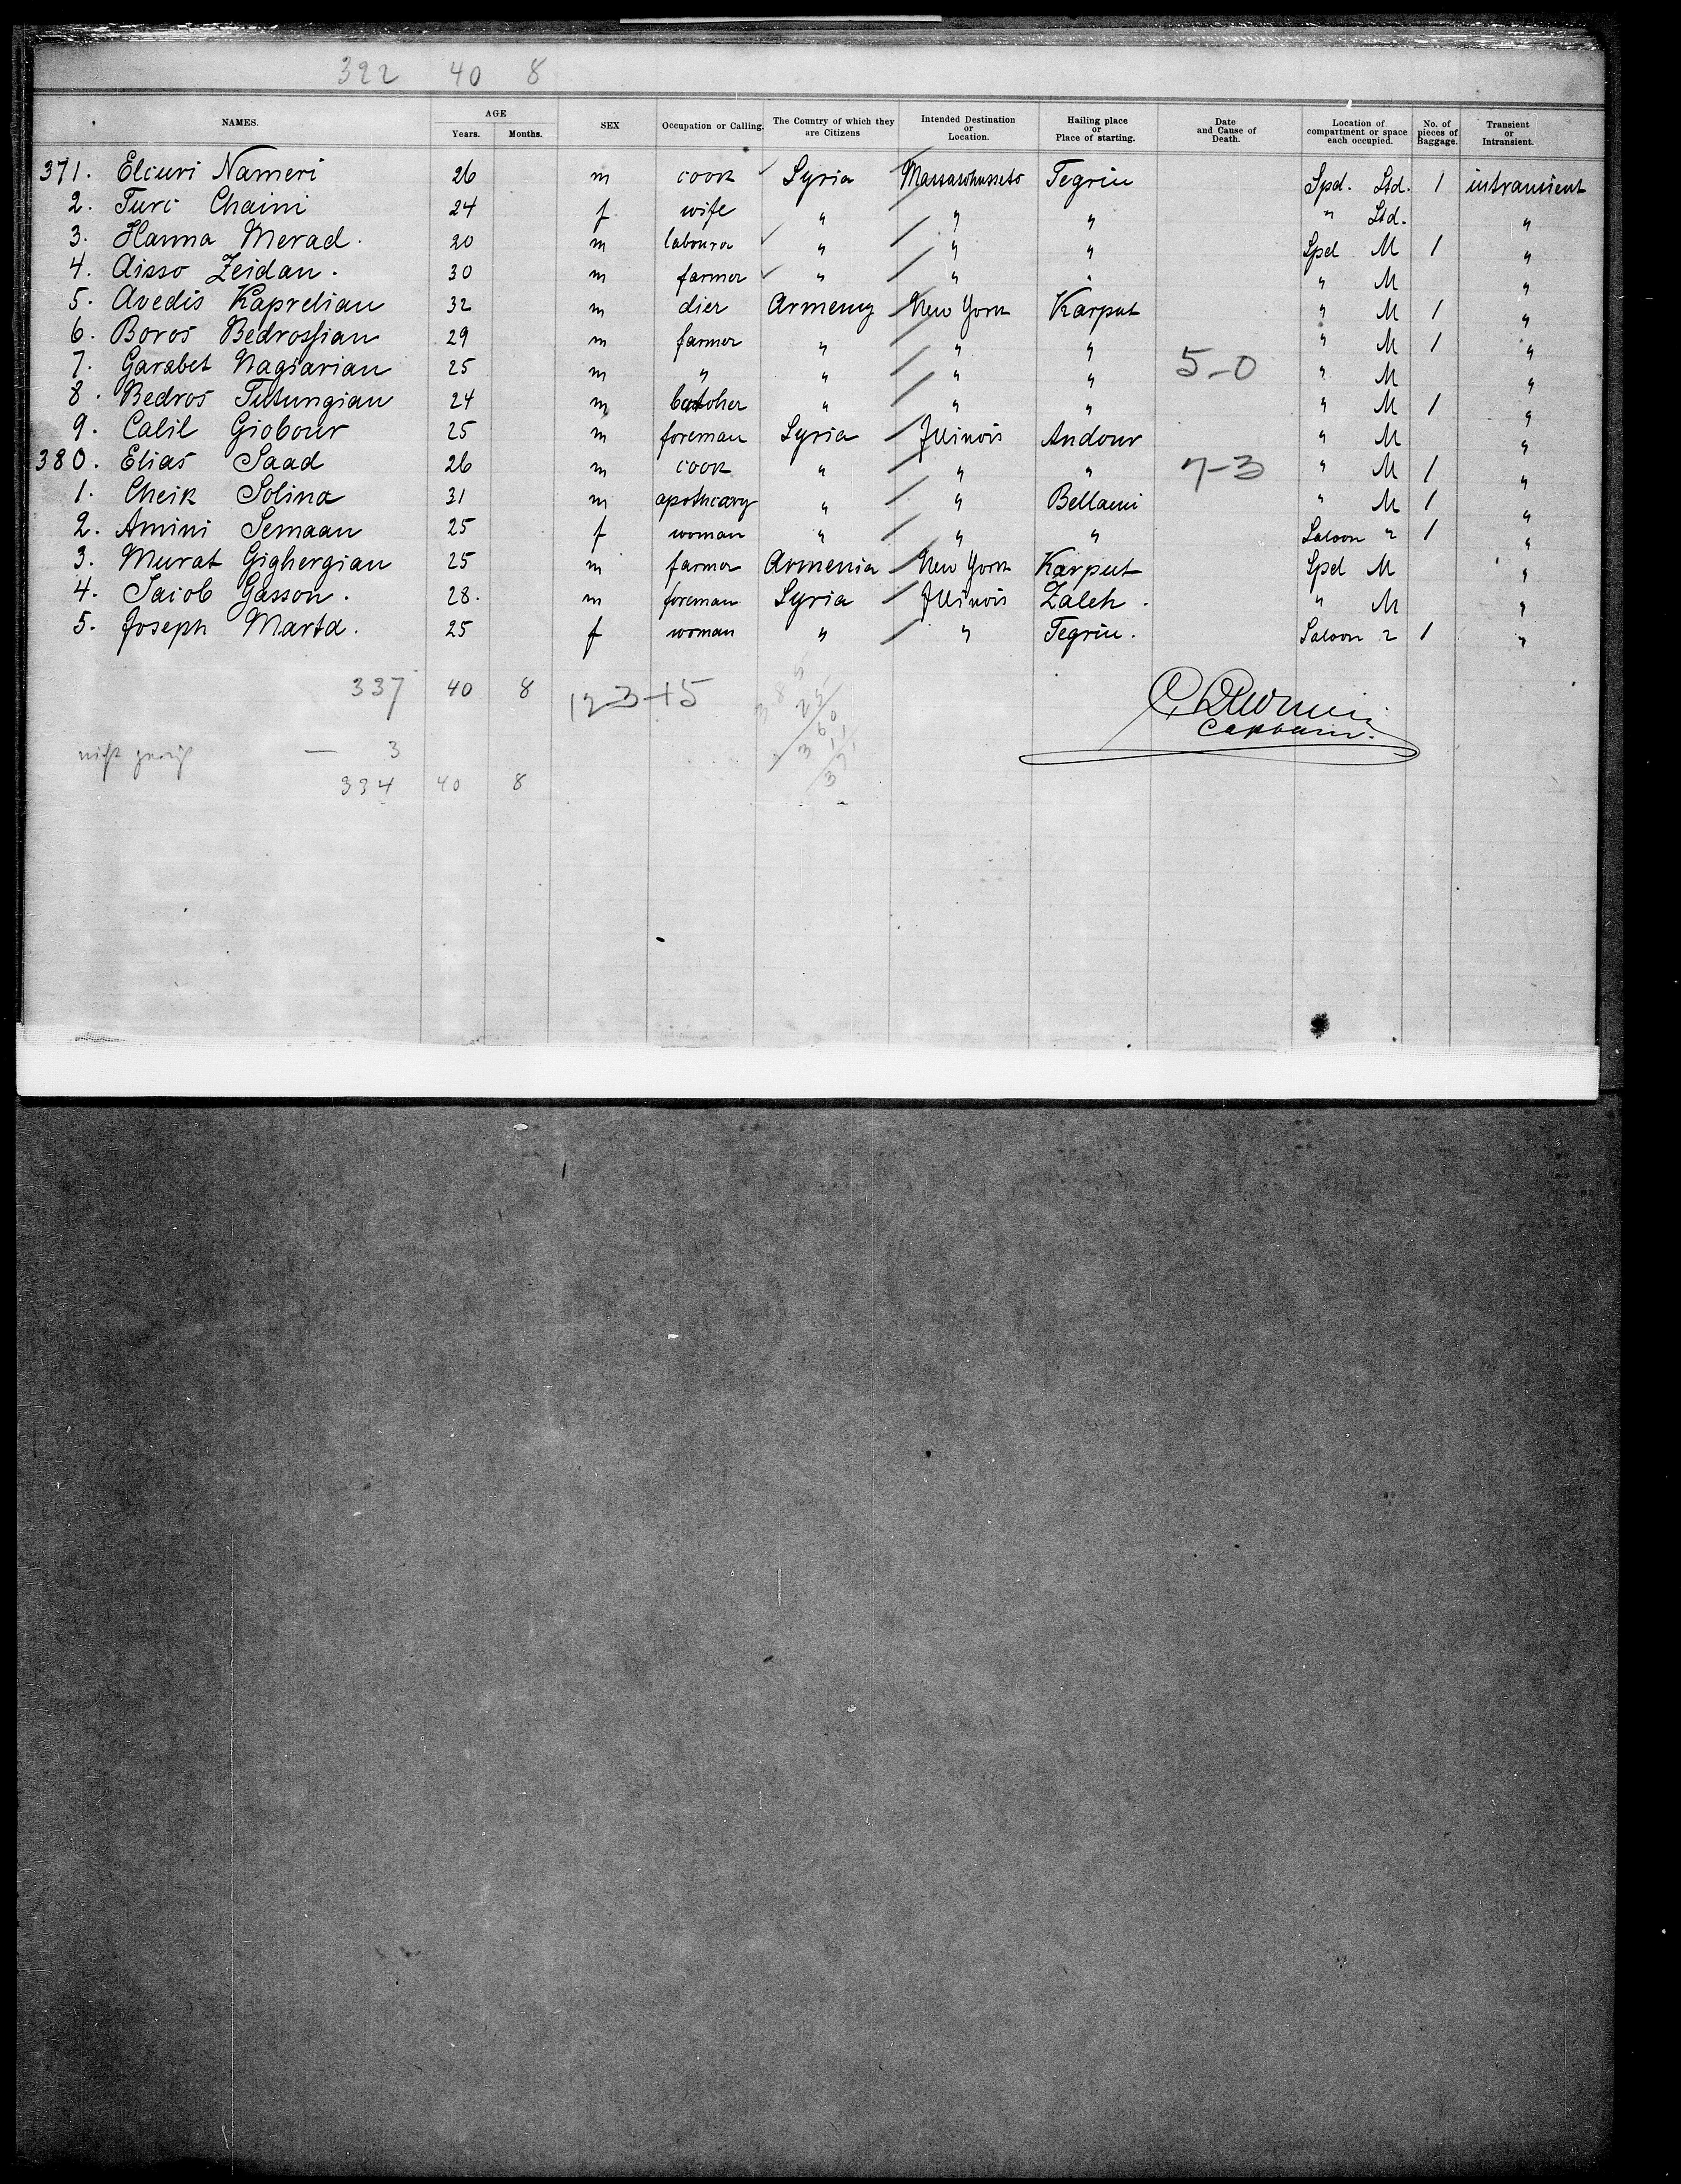 322 40 8
NAMES. AGE Years. Months. SEX Occupation or Calling. The Country of which they are Citizens Intended Destination or Location. Hailing place or Place of starting. Date and Cause of Death. Location of compartment or space each occupied. No. of pieces of Baggage. Transient or Intransient.
371. Elcuri Nameri 26 m cook Syria Massachussets Tegrin Spd. Std. 1 intransient
2. Turc Chaini 24 f wife " " " " Std. "
3. Hanna Merad. 20 m labourer " " " Spd M 1 "
4. Aisso Zeidan. 30 m farmer " " " " M "
5. Avedis Kaprelian 32 m dier Armeny New York Karput " M 1 "
6. Boros Bedrossian 29 m farmer " " " " M 1 "
7. Garabet Nagiarian 25 m " " " " 5-0 " M "
8. Bedros Tutungian 24 m butcher " " " " M 1 "
9. Calil Giobour 25 m foreman Syria Illinois Andour " M "
380. Elias Saad 26 m cook " " " 7-3 " M 1 "
1. Cheik Solina 31 m apothecary " " Bellami " M 1 "
2. Amini Semaan 25 f woman " " " Saloon 2 1 "
3. Murat Gighergian 25 m farmer Armenia New York Karput Spd M "
4. Jacob Gasson. 28. m foreman Syria Illinois Zaleh. " M "
5. Joseph Marta. 25 f woman " " Tegrin. Saloon 2 1 "
337 40 8 12-3+5
Captain.
— 3
334 40 8